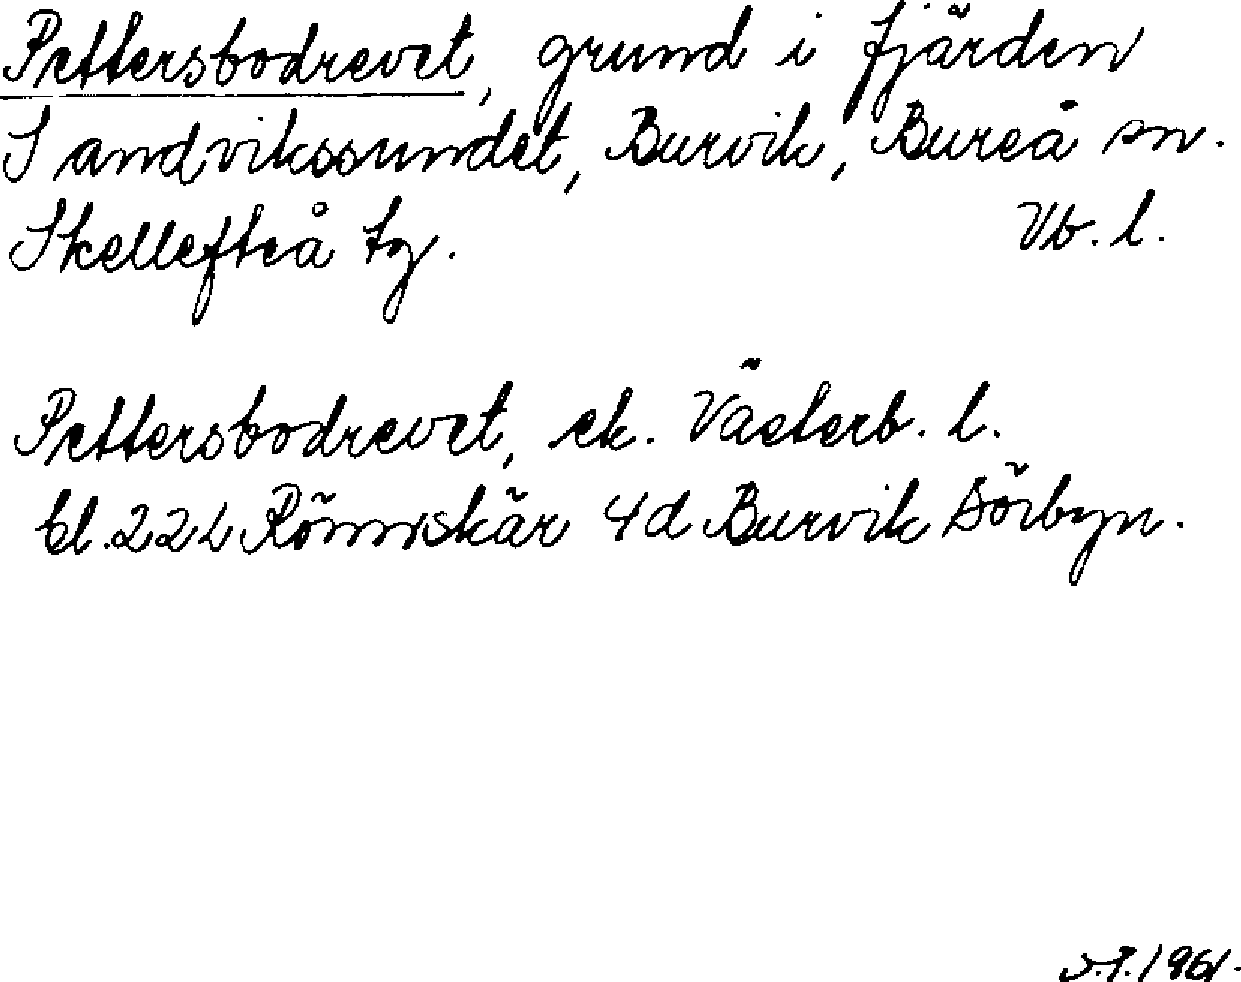 Pettersbodrevet, grund i fjärden
Sandvikssundet, Burvik, Bureå sn.
Skellefteå tg. Vb. l.
Pettersbodrevet, ek. Västerb. l.
bl. 22 L Rönnskär 4d Burvik Sörbyn.
1961.